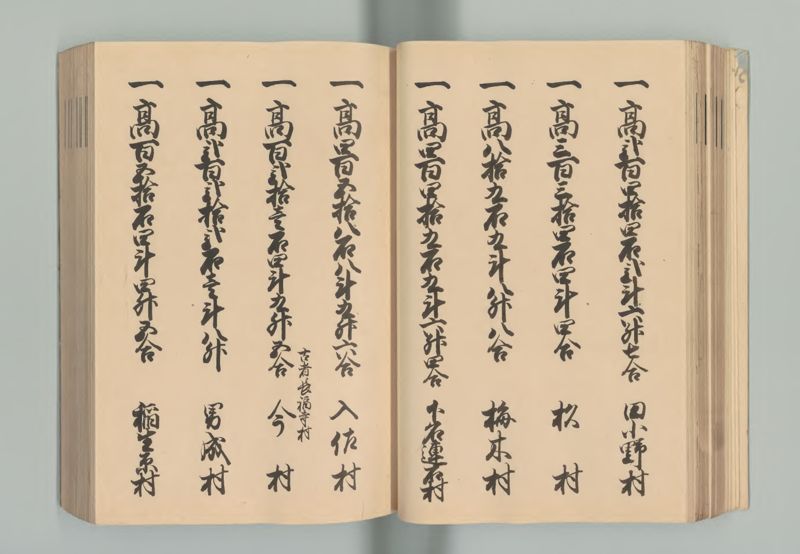 一高弐百四拾四石弐斗六升七合 田小野村
一高三百三拾四石四斗四合 松村
一高八拾九石九斗八升八合 梅木村
一高四百四拾九石九斗六升四合 下名連石村
一高四百五拾八石八斗九升六合 入佐村
古者長福寺村
一高百弐拾壱石四斗九升五合 今村
一高弐百弐拾弐石壱斗八升 男成村
一高百五拾石四斗四升五合 稲生原村